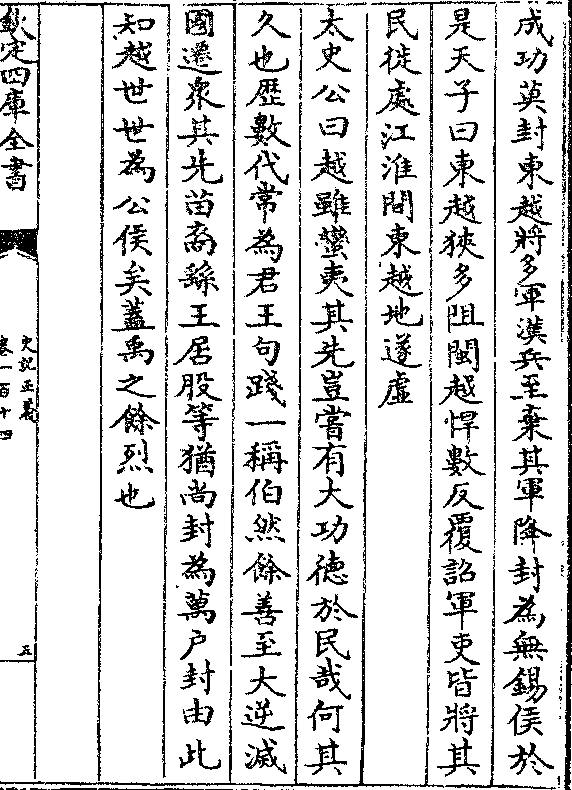 成功莫封東越將多軍漢兵至棄其軍降封為無錫侯於
是天子曰東越狹多阻閩越悍數反覆詔軍吏皆將其
民徙處江淮間東越地遂虛
太史公曰越雖蠻夷其先豈嘗有大功德於民哉何其
久也歷數代常為君王句踐一稱伯然餘善至大逆滅
國遷衆其先苗裔繇王居股等猶尚封為萬户封由此
知越世世為公侯矣蓋禹之餘烈也
欽定四庫全書
史記正義
卷一百十四
五